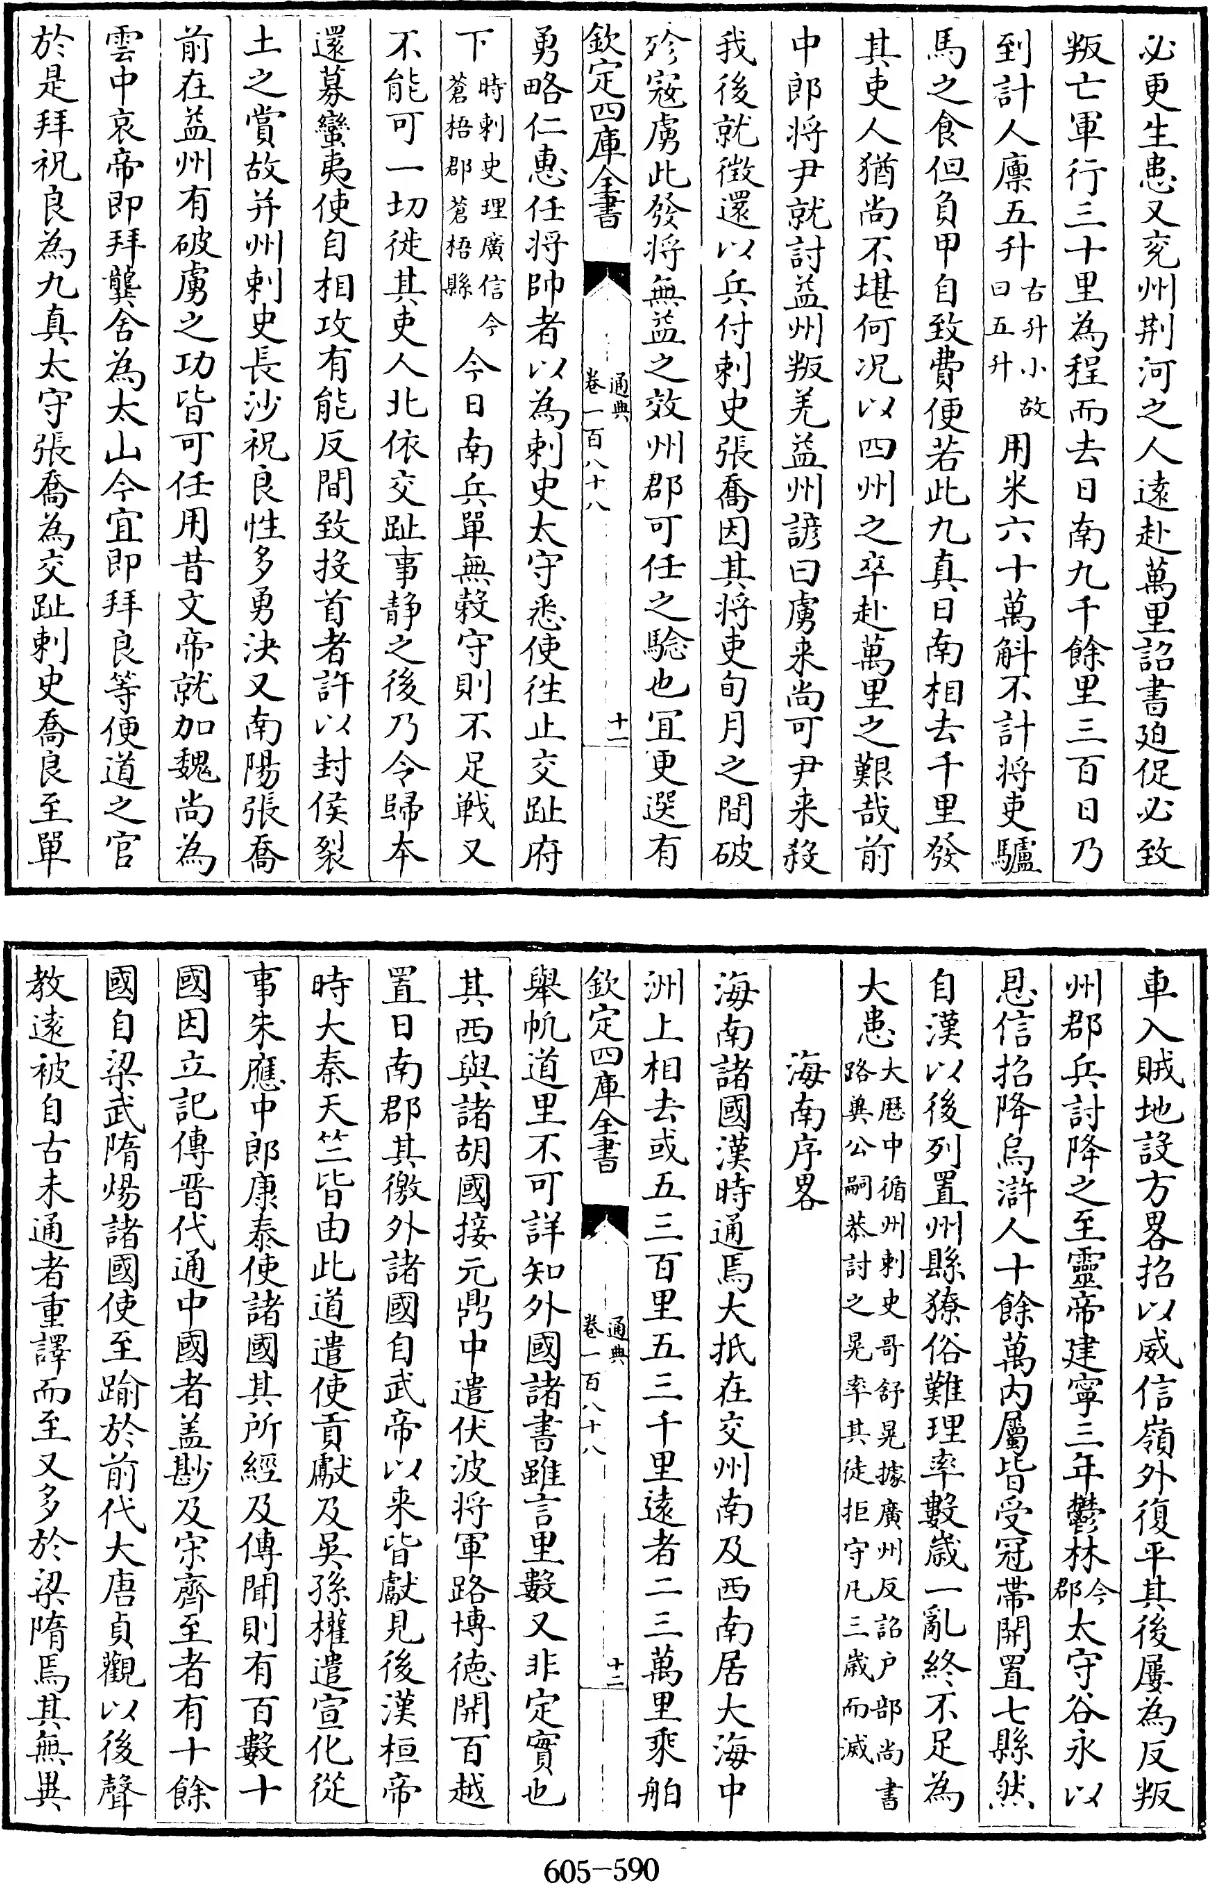 必更生患又兖州荆河之人遠赴萬里詔書廹促必致
叛亡軍行三十里為程而去日南九千餘里三百日乃
到計人廪五升古升小故曰五升用米六十萬斛不計将吏驢
馬之食但負甲自致費便若此九真日南相去千里發
其吏人猶尚不堪何况以四州之卒赴萬里之艱哉前
中郎将尹就討益州叛羌益州諺曰虜来尚可尹来殺
我後就徴還以兵付刺史張喬因其将吏旬月之間破
殄寇虜此發将無益之效州郡可任之驗也宜更選有
欽定四庫全書
通典
卷一百八十八
十一
勇略仁惠任将帥者以為刺史太守悉使徃止交趾府
下時刺史理廣信今蒼梧郡蒼梧縣今日南兵單無穀守則不足戰又
不能可一切徙其吏人北依交趾事静之後乃令歸本
還募蠻夷使自相攻有能反間致投首者許以封侯裂
土之賞故并州刺史長沙祝良性多勇決又南陽張喬
前在益州有破虜之功皆可任用昔文帝就加魏尚為
雲中哀帝即拜龔舍為太山今宜即拜良等便道之官
於是拜祝良為九真太守張喬為交趾刺史喬良至單
車入賊地設方畧招以威信嶺外復平其後屢為反叛
州郡兵討降之至靈帝建寧三年鬱林今郡太守谷永以
恩信招降烏滸人十餘萬内屬皆受冠帯開置七縣然
自漢以後列置州縣獠俗難理率數歳一亂終不足為
大患大厯中循州刺史哥舒晃據廣州反詔户部尚書路兾公嗣恭討之晃率其徒拒守凡三歳而滅
海南序畧
海南諸國漢時通焉大抵在交州南及西南居大海中
洲上相去或五三百里五三千里遠者二三萬里乘舶
欽定四庫全書
通典
卷一百八十八
十二
舉帆道里不可詳知外國諸書雖言里數又非定實也
其西與諸胡國接元鼎中遣伏波将軍路博徳開百越
置日南郡其徼外諸國自武帝以来皆獻見後漢桓帝
時大秦天竺皆由此道遣使貢獻及吳孫權遣宣化從
事朱應中郎康泰使諸國其所經及傳聞則有百數十
國因立記傳晋代通中國者盖尠及宋齊至者有十餘
國自梁武隋煬諸國使至踰於前代大唐貞觀以後聲
教遠被自古未通者重譯而至又多於梁隋焉其無異
605-590